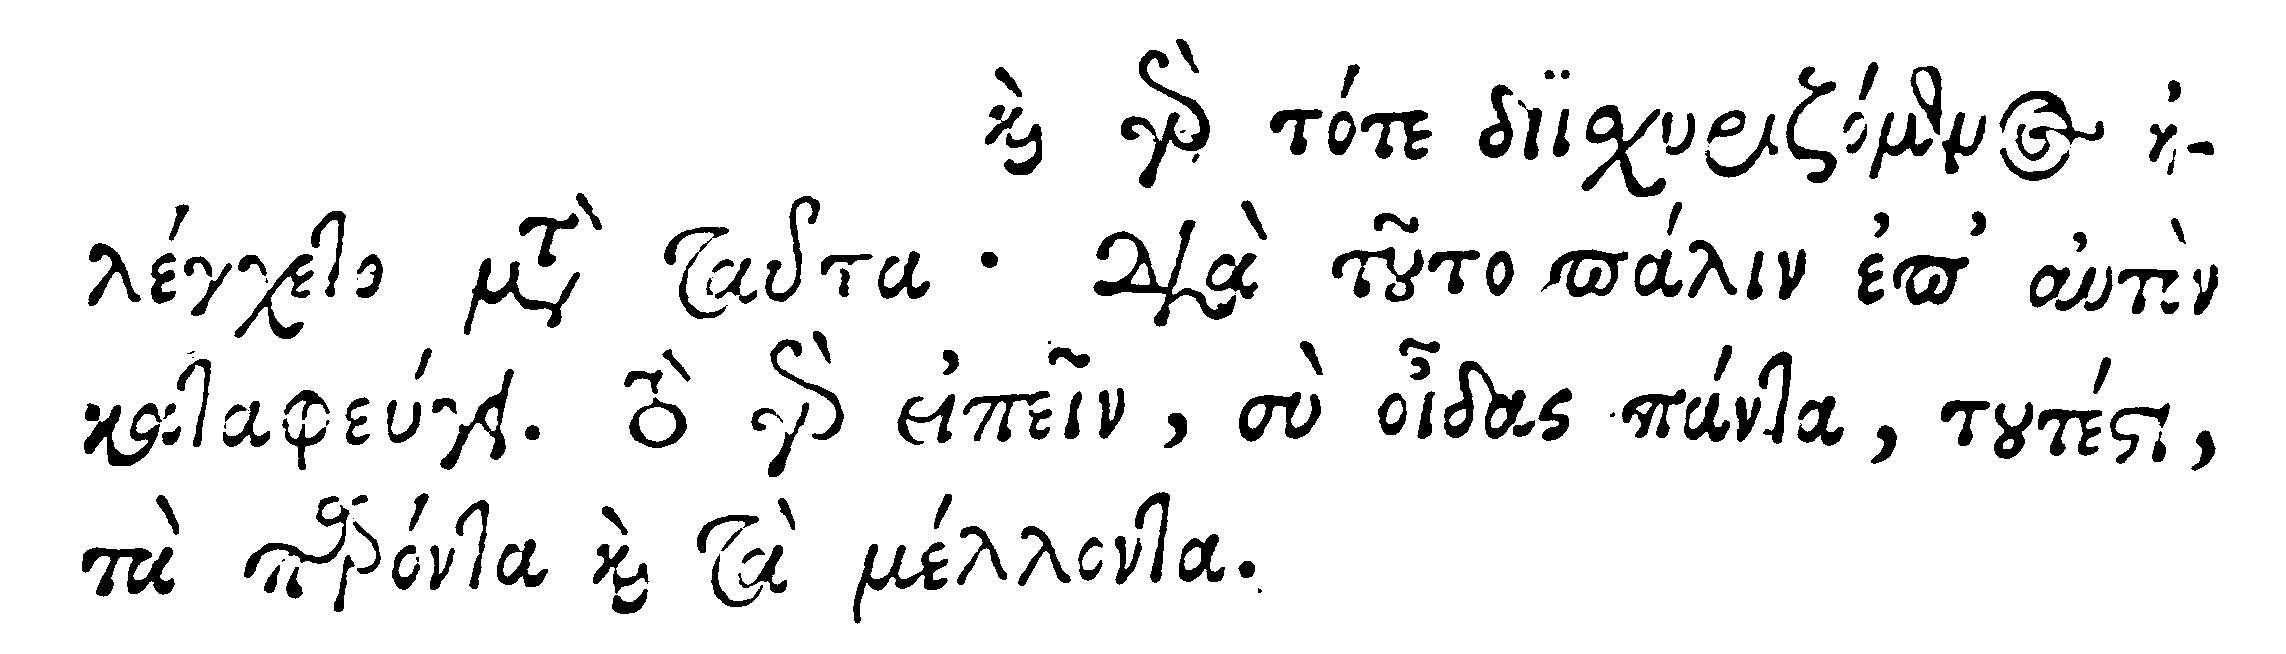 καὶ γὰρ τότε διϊσχυριζόμενος ἠ-
λέγχετο μετὰ ταῦτα· διὰ τοῦτο πάλιν ἐπ' αὐτὸν
καταφεύγει. τὸ γὰρ εἰπεῖν, σὺ οἶδας πάντα, τουτέστι,
τὰ παρόντα καὶ τὰ μέλλοντα.